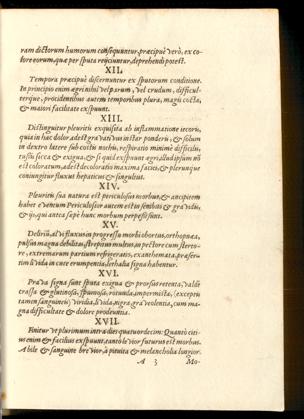 ram dictorum humorum consequuntur, præcipuè verò, ex co-
lore eorum, quæ per sputa reijciuntur, deprehendi potest.
XII.
Tempora præcipuè discernuntur ex sputorum conditione.
In principio enim ægri nihil vel parum, vel crudum, difficul-
terque, procedentibus autem temporibus plura, magis cocta,
& maiori facilitate exspuunt.
XIII.
Distinguitur pleuritis exquisita ab inflammatione iecoris,
quia in hac dolor adest grauatiuus instar ponderis, & solum
in dextro latere sub costis nothis, respiratio minimè difficilis,
tussis sicca & exigua, & si quid exspuunt ægri, illud ipsum nō
est coloratum, adest decoloratio maxima faciei, & plerunque
coniungitur fluxus hepaticus & singultus.
XIV.
Pleuritis sua natura est periculosus morbus, & ancipitem
habet euentum Periculosior autem est in senibus & grauidis,
& ijs, qui antea sæpè hunc morbum perpeßi sunt.
XV.
Delirii, alui fluxus in progressu morbi obortus, orthopnœa,
pulsus magna debilitas, strepitus multus, in pectore cum sterto-
re, extremarum partium refrigeratio, exanthemata, præser-
tim liuida in cute erumpentia, lethalia signa habentur.
XVI.
Praua signa sunt sputa exigua & prorsus retenta, valdè
crassa & glutinosa, spumosa, rotunda, impermixta, (exceptis
tamen sanguineis) viridia, liuida, nigra, graueolentia, cum ma-
gna difficultate & dolore prodeuntia.
XVII.
Finitur vt plurimum intra dies quatuordecim: Quantò citi-
us enim & facilius exspuunt, tantò leuior futurus est morbus.
A bile & sanguine breuior, à pituita & melancholia longior.
A 3 Mo-